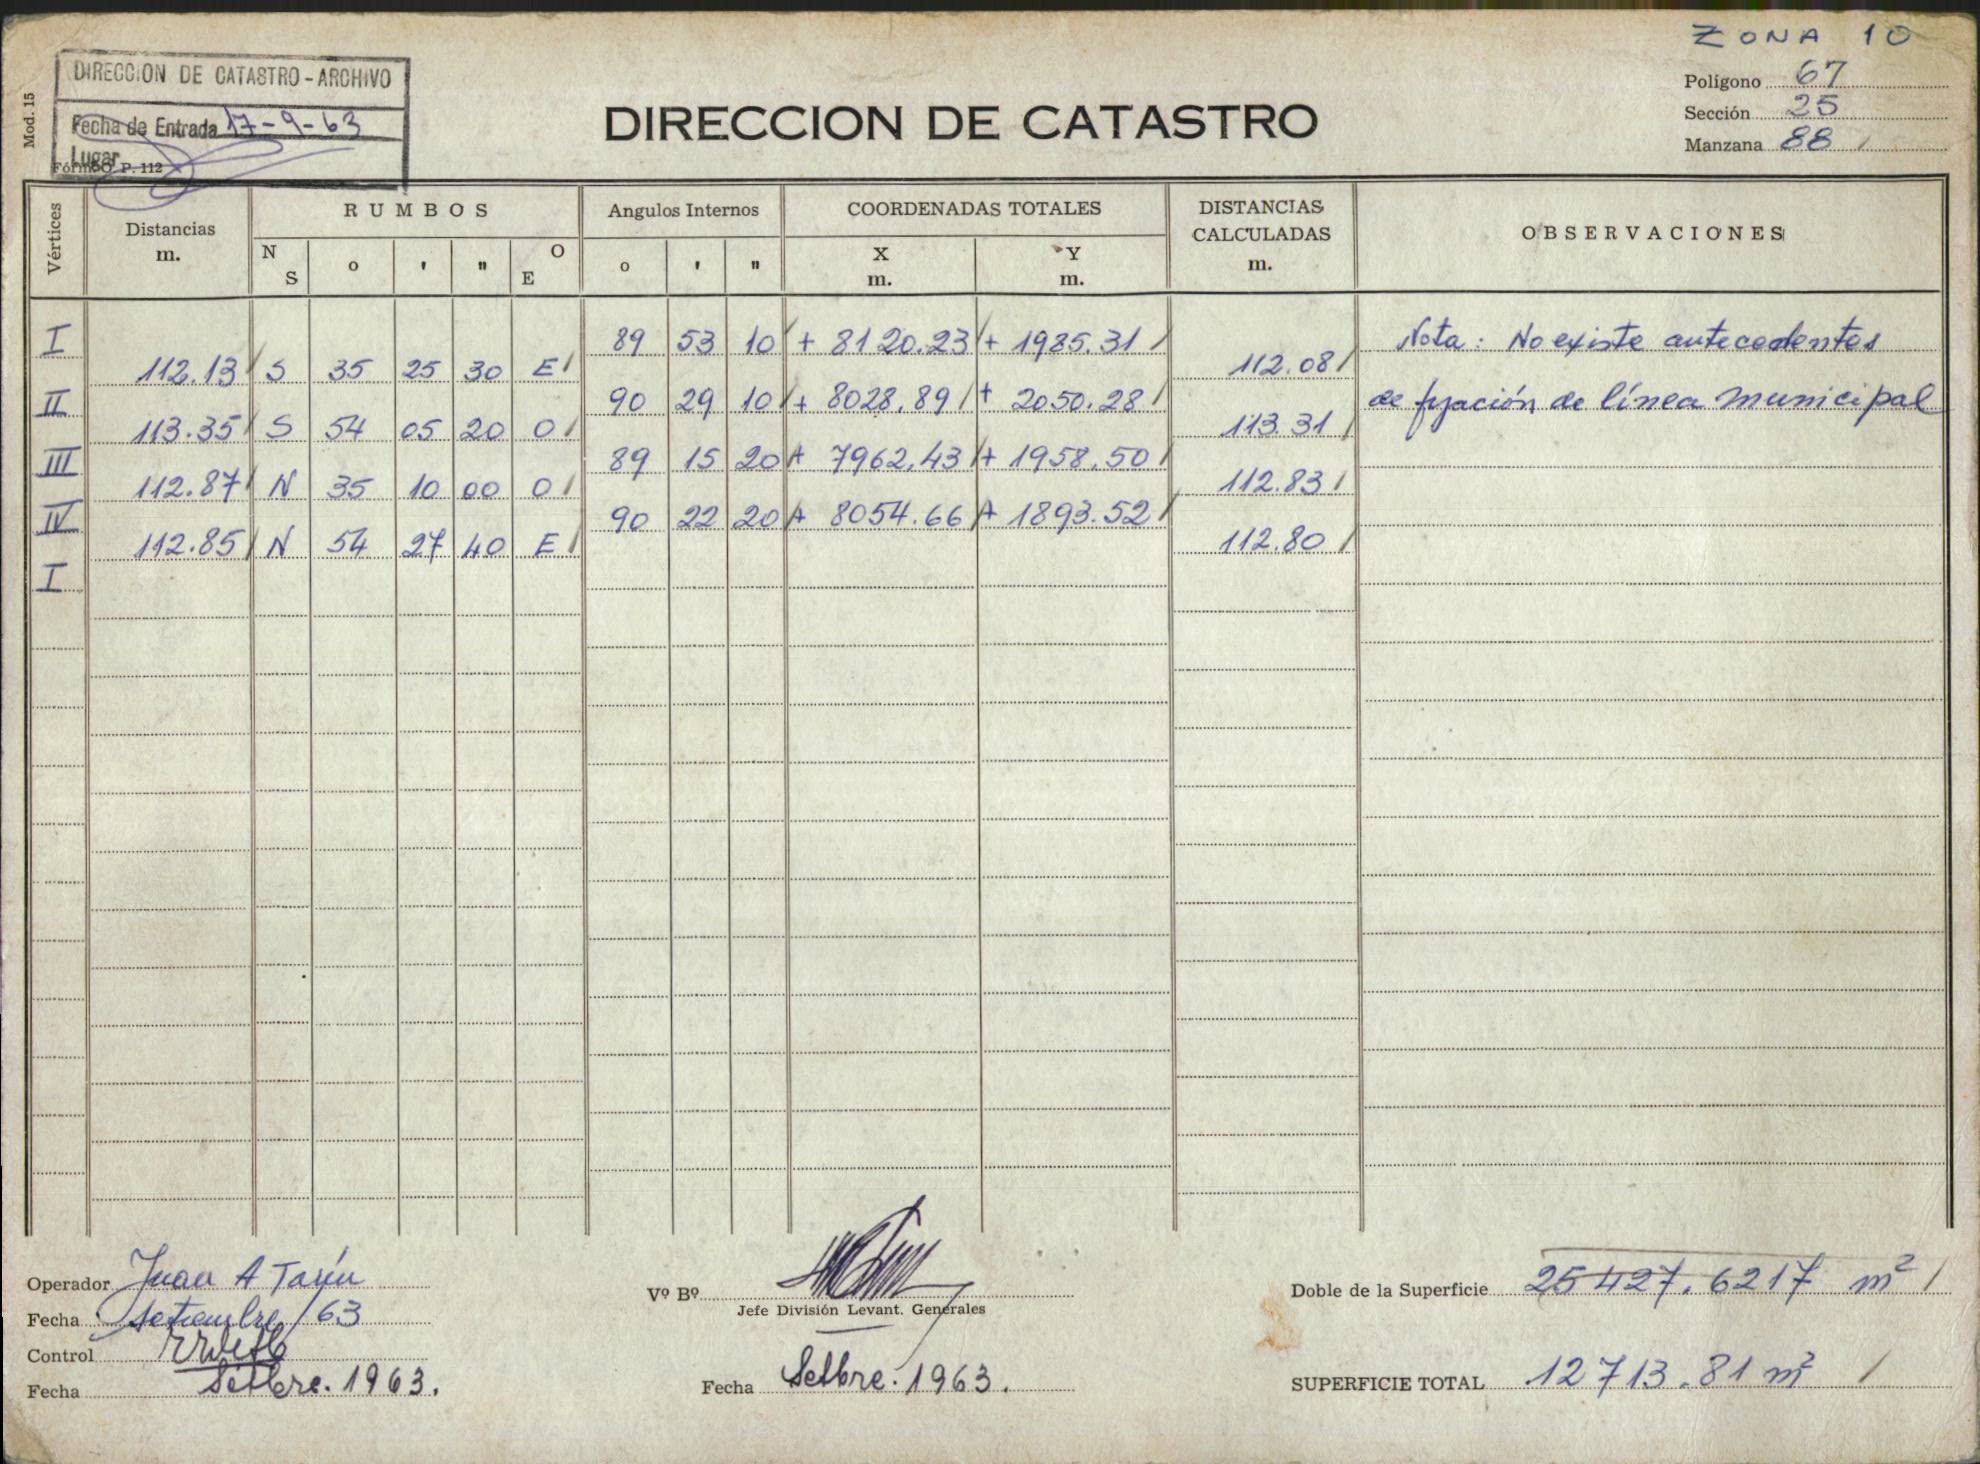 ZONA 10
DIRECCION DE CATASTRO - ARCHIVO
Fecha de Entrada 17-9-63
Lugar
Mod. 15
Form. O. P. 112
DIRECCION DE CATASTRO
Polígono 67
Sección 25
Manzana 88 /
Vértices Distancias m. RUMBOS Angulos Internos COORDENADAS TOTALES DISTANCIAS CALCULADAS m. OBSERVACIONES
N S o ' " O E o ' " X m. Y m.
I 89 53 10 / + 8120.23 / + 1985.31 / Nota: No existe antecedentes
112.13 / S 35 25 30 E / 112.08 /
II 90 29 10 / + 8028.89 / + 2050.28 / de fijación de línea municipal
113.35 / S 54 05 20 O / 113.31 /
III 89 15 20 / + 7962.43 / + 1958.50 /
112.87 / N 35 10 00 O / 112.83 /
IV 90 22 20 / + 8054.66 / + 1893.52 /
112.85 / N 54 27 40 E / 112.80 /
I
Operador Juan A
Fecha setiembre/63
Control
Fecha Setbre. 1963.
Vº Bº
Jefe División Levant. Generales
Fecha Setbre. 1963.
Doble de la Superficie 25427.6217 m² /
SUPERFICIE TOTAL 12713.81 m² /